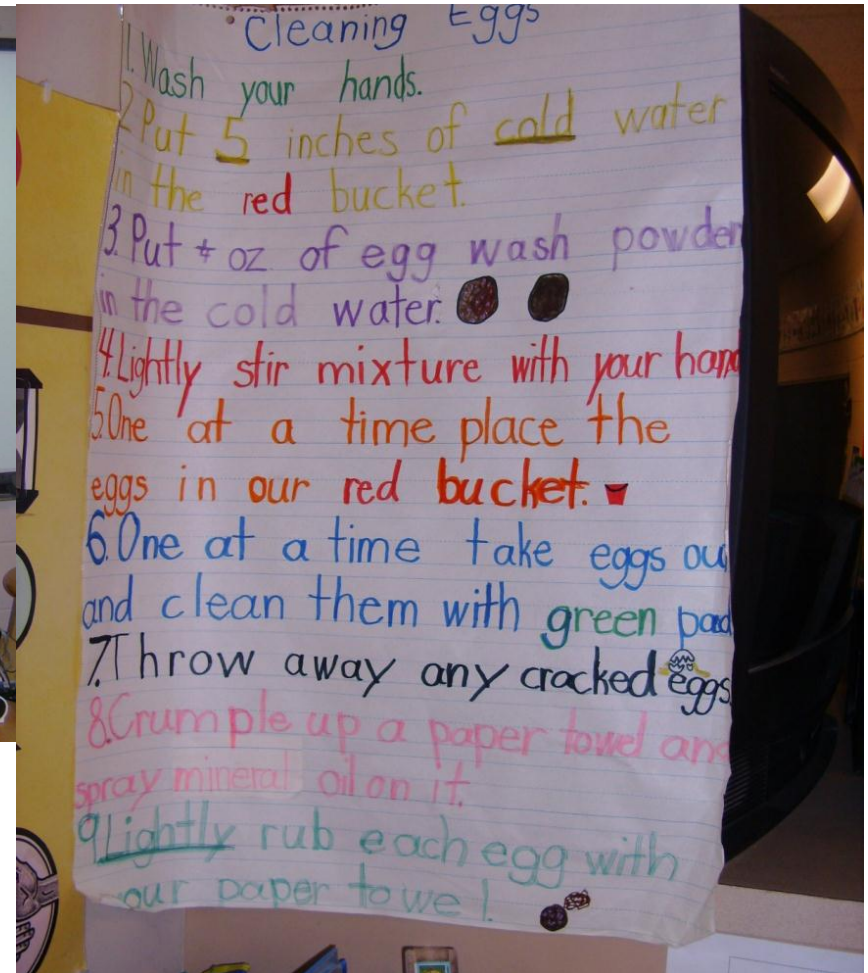 Cleaning Eggs
1. Wash your hands.
2. Put 5 inches of cold water
in the red bucket.
3. Put 4 oz of egg wash powder
in the cold water.
4. Lightly stir mixture with your hand
5. One at a time place the
eggs in our red bucket.
6. One at a time take eggs ou
and clean them with green pad
7. Throw away any cracked eggs.
8. Crumple up a paper towel and
spray mineral oil on it.
9. Lightly rub each egg with
our paper towel.